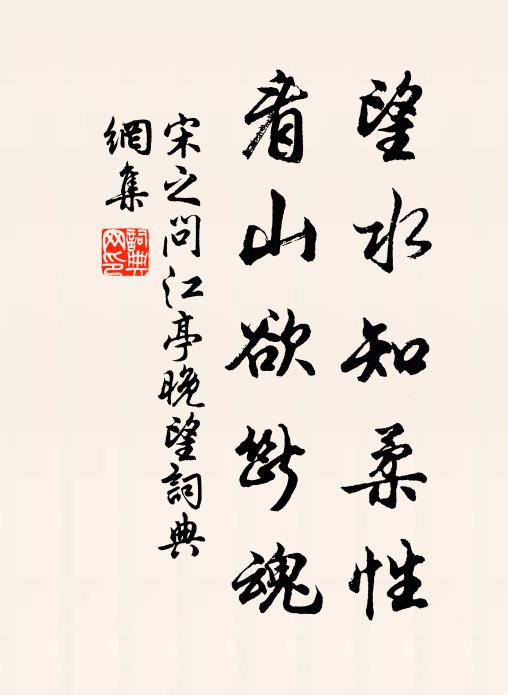 望水知柔性
看山欲斷魂
宋之問江亭晚望詞典
網集
詞典
网印